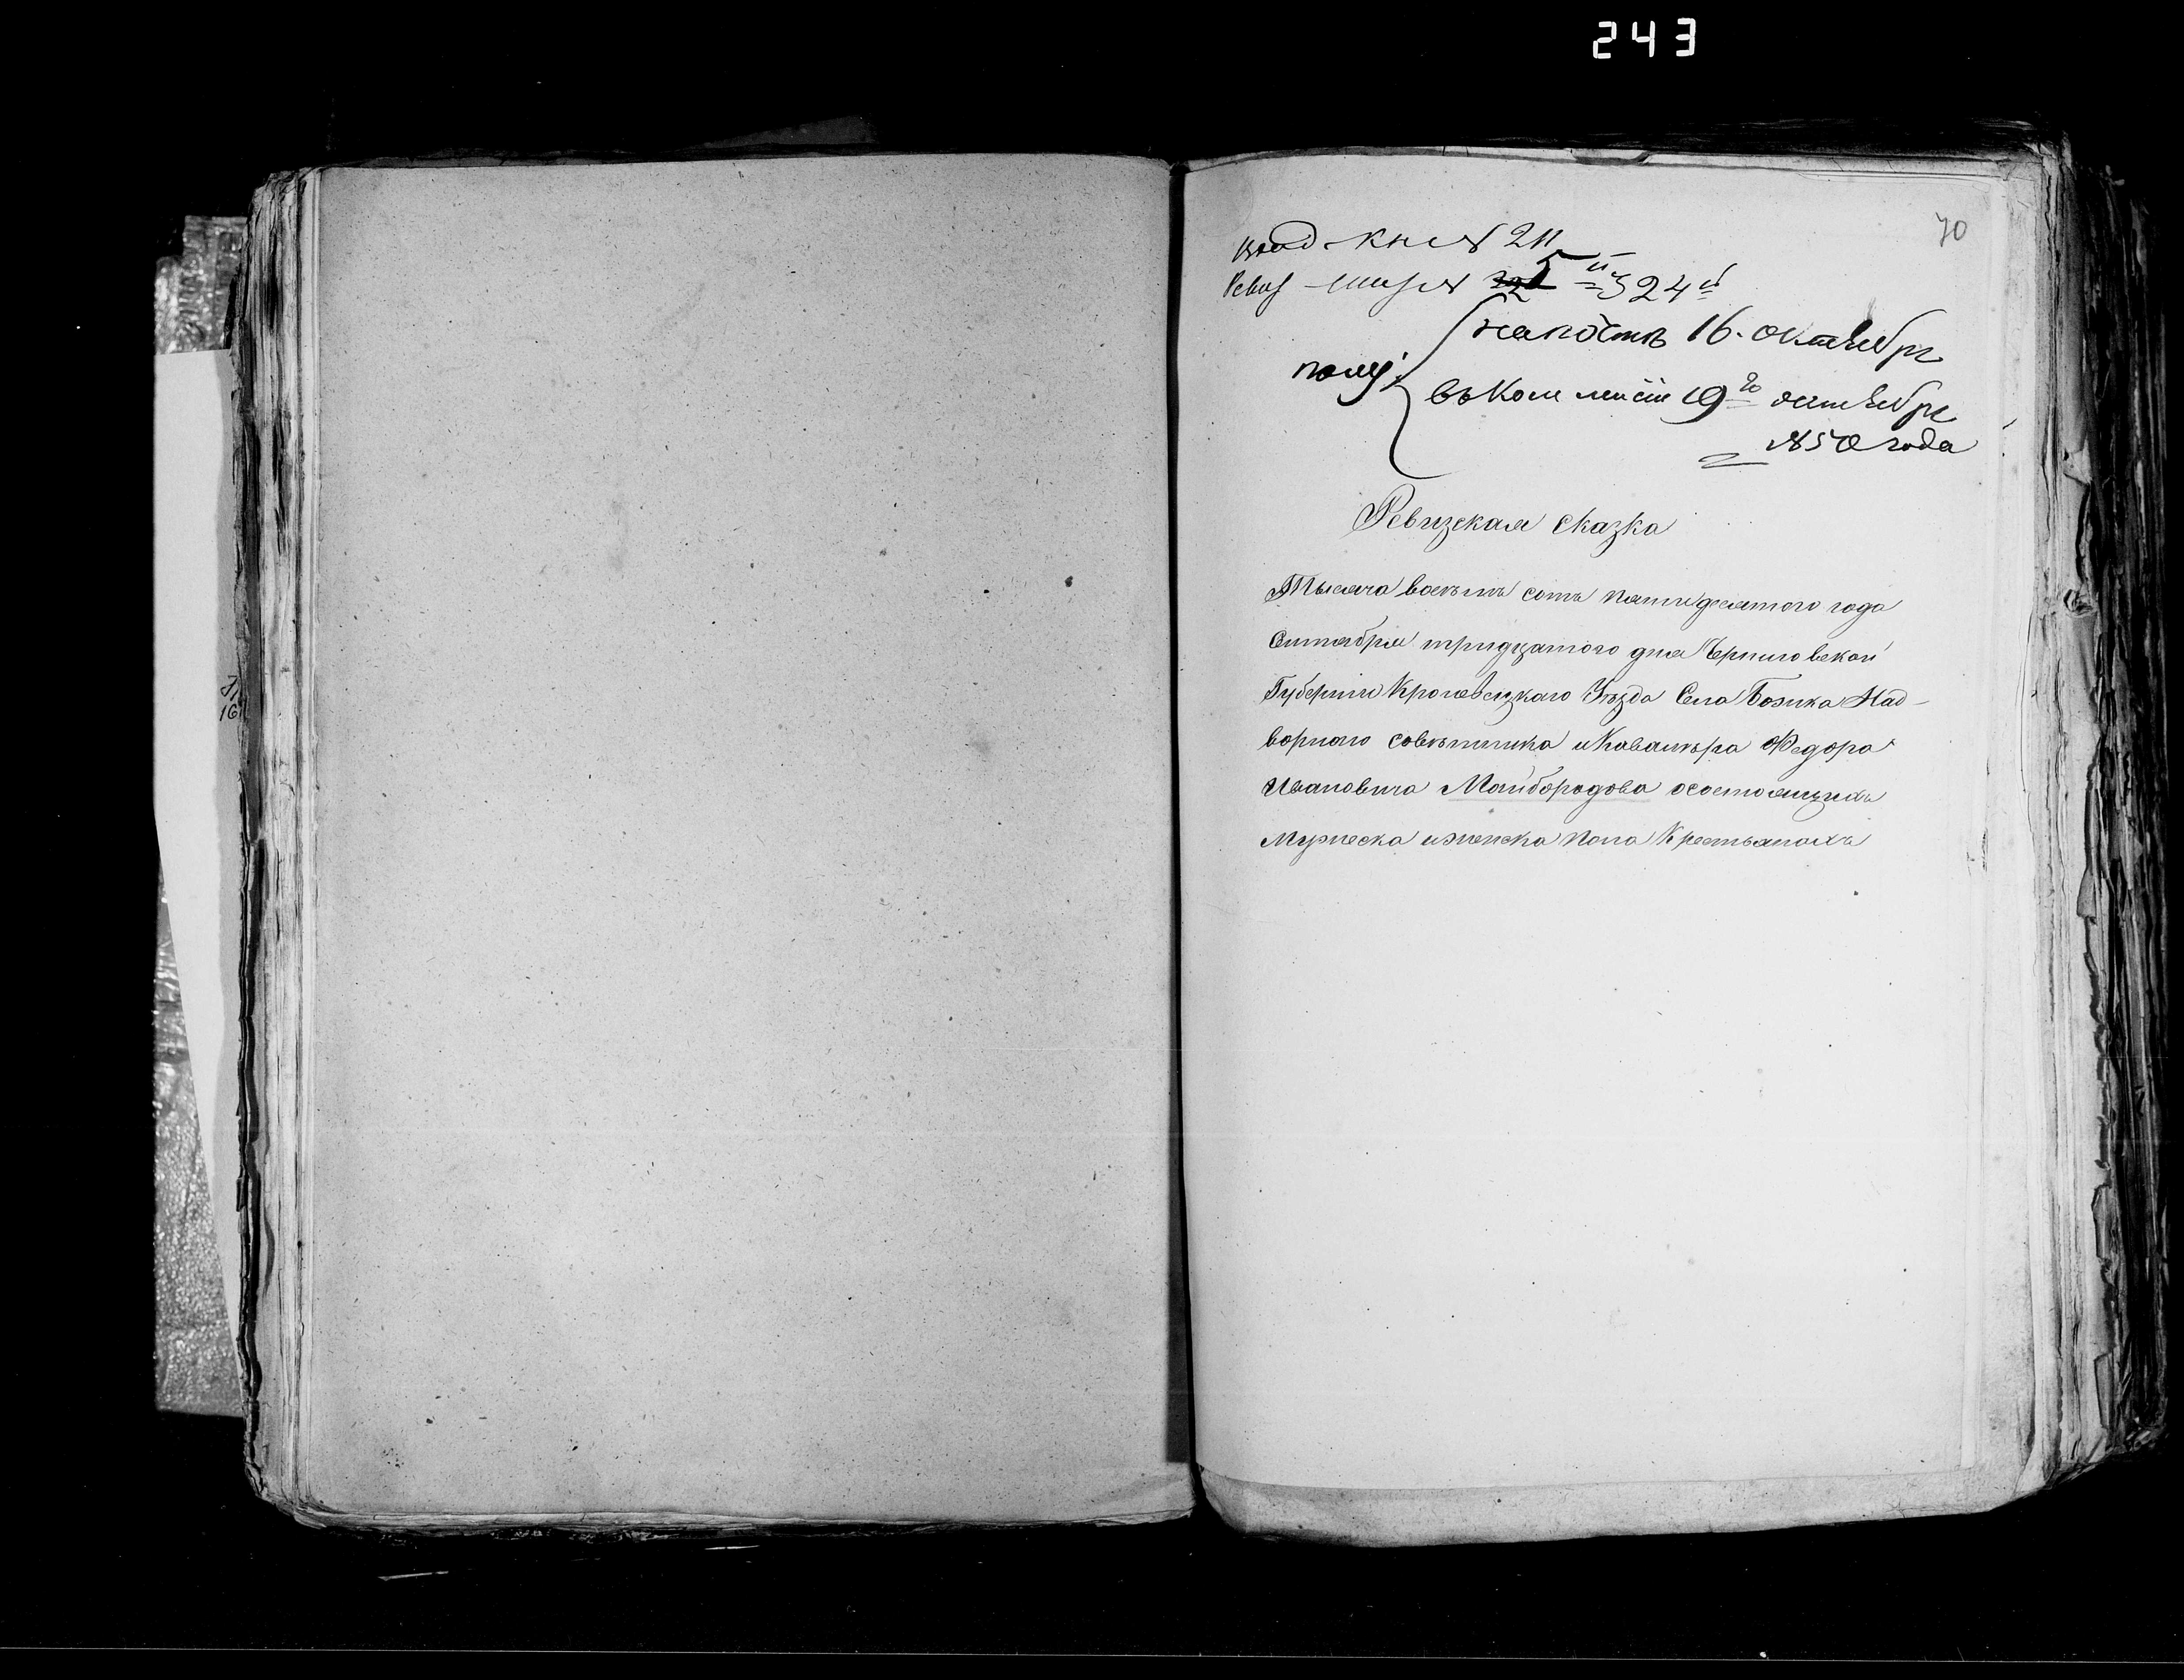 243
70
вход. кн. № 211
Ревиз
324
получ. на почтѣ 16. октября
въ Коммисіи 19го октября
1850 года
Ревизская сказка
Тысяча восемь сотъ пятидесятого года
Сентября тридцатого дня Черниговской
Губерніи Кролевецкаго Уѣзда Села Божка Над-
ворнаго совѣтника и Кавалѣра Федора
Ивановича Майбородова осостоящихъ
Мужеска и женска пола Крестьянахъ